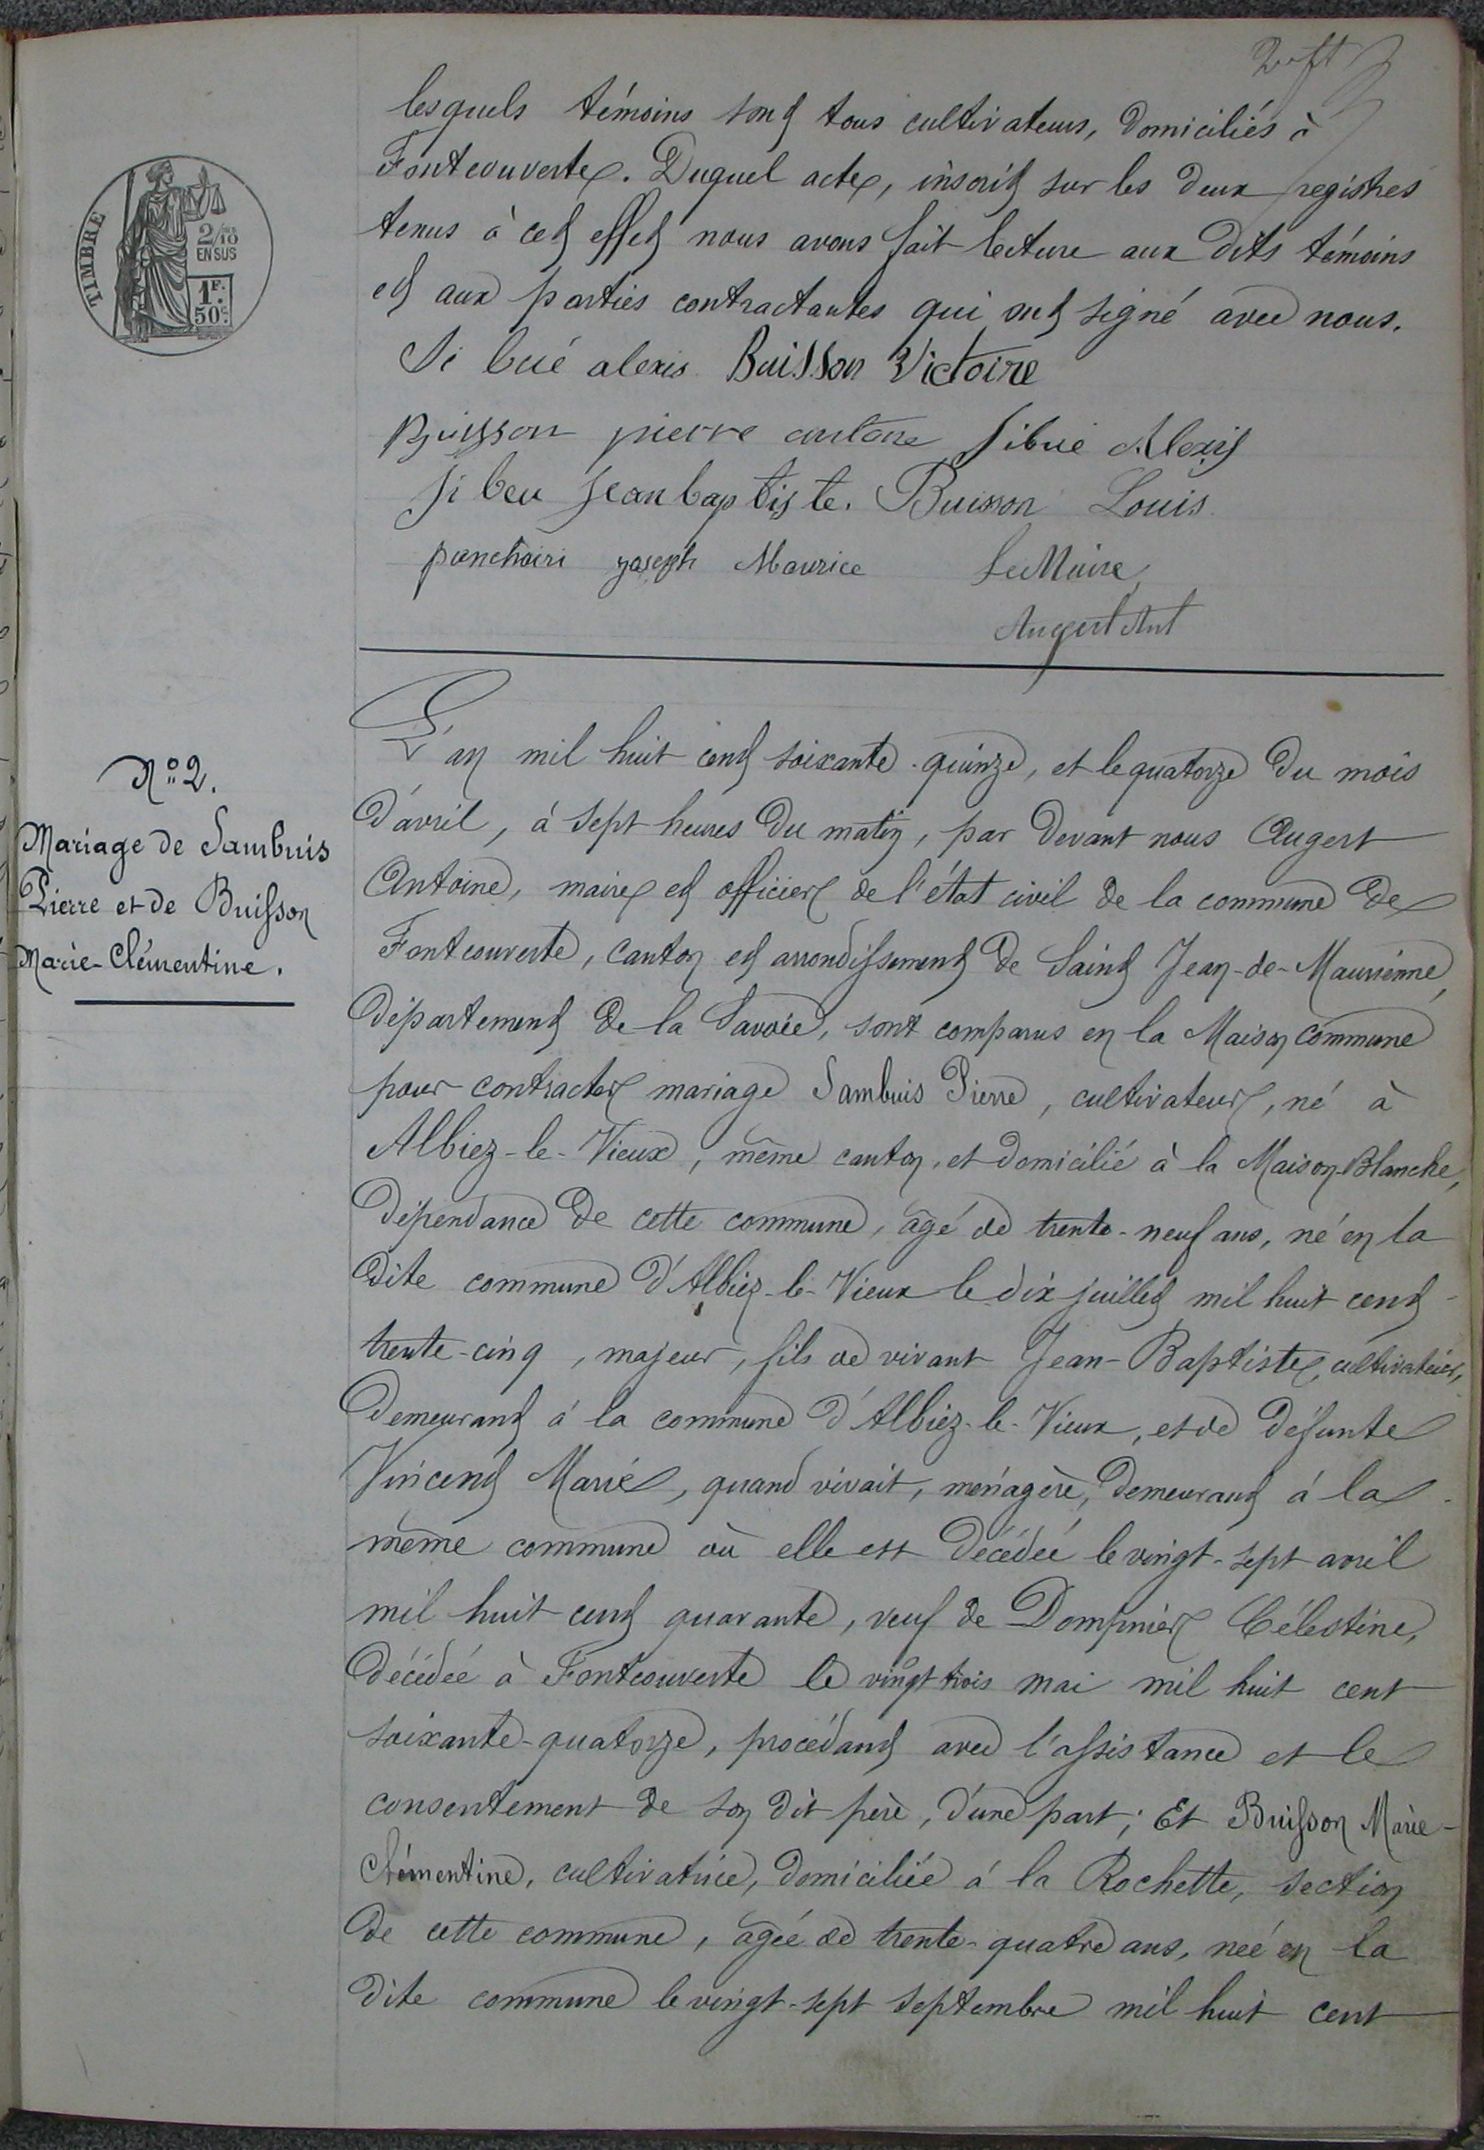 lesquels témoins sont tous cultivateurs, domiciliés à
Fontcouverte. Duquel acte, inscrit sur les deux registres
tenus à cet effet nous avons fait lecture aux dits témoins
et aux parties contractantes qui ont signé avec nous.
Si bué alexis Buisson Victoire
Buisson pierre antoine Sibué Alexis
Si beu jean baptiste. Buisson Louis
joseph Maurice Le Maire,
Augert Ant
TIMBRE
2/10
EN SUS
1F.
50c.
Nº 2.
Mariage de Sambuis
Pierre et de Buisson
Marie-Clémentine.
L'an mil huit cent soixante-quinze, et le quatorze du mois
d'avril, à sept heures du matin, par devant nous Augert
Antoine, maire et officier de l'état civil de la commune de
Fontcouverte, canton et arrondissement de Saint Jean-de-Maurienne,
département de la Savoie, sont comparus en la Maison commune
pour contracter mariage Sambuis Pierre, cultivateur, né à
Albiez-le-Vieux, même canton, et domicilié à la Maison-Blanche,
dépendance de cette commune, âgé de trente-neuf ans, né en la
dite commune d'Albiez-le-Vieux le dix juillet mil huit cent
trente-cinq, majeur, fils de vivant Jean-Baptiste, cultivateur,
demeurant à la commune d'Albiez-le-Vieux, et de défunte
Vincent Marie, quand vivait, ménagère, demeurant à la
même commune où elle est décédée le vingt-sept avril
mil huit cent quarante, veuf de Dompnier Célestine,
décédée à Fontcouverte le vingt trois mai mil huit cent
soixante-quatorze, procédant avec l'assistance et le
consentement de son dit père, d'une part; Et Buisson Marie-
Clémentine, cultivatrice, domiciliée à la Rochette, section
de cette commune, âgée de trente-quatre ans, née en la
dite commune le vingt-sept septembre mil huit cent